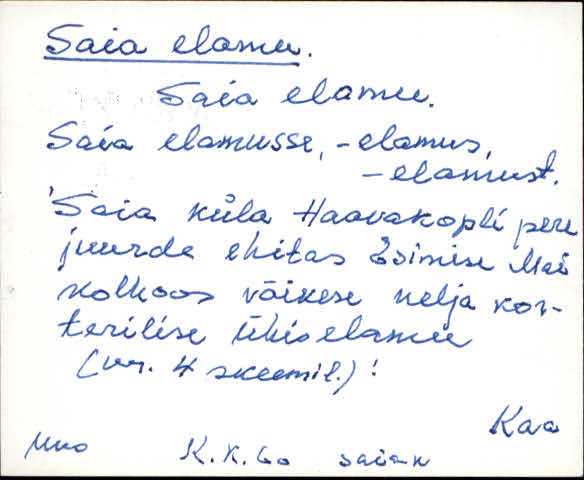 Saia elamu.
Saia elamu.
Saia elamusse, -elamus,
-elamust.
'Saia küla Haavakopli pere
juurde ehitas Esimese Mai
kolhoos väikese nelja kor-
terilise ühiselamu
(nr. 4 skeemil.)'
Kaa
K. K. 60